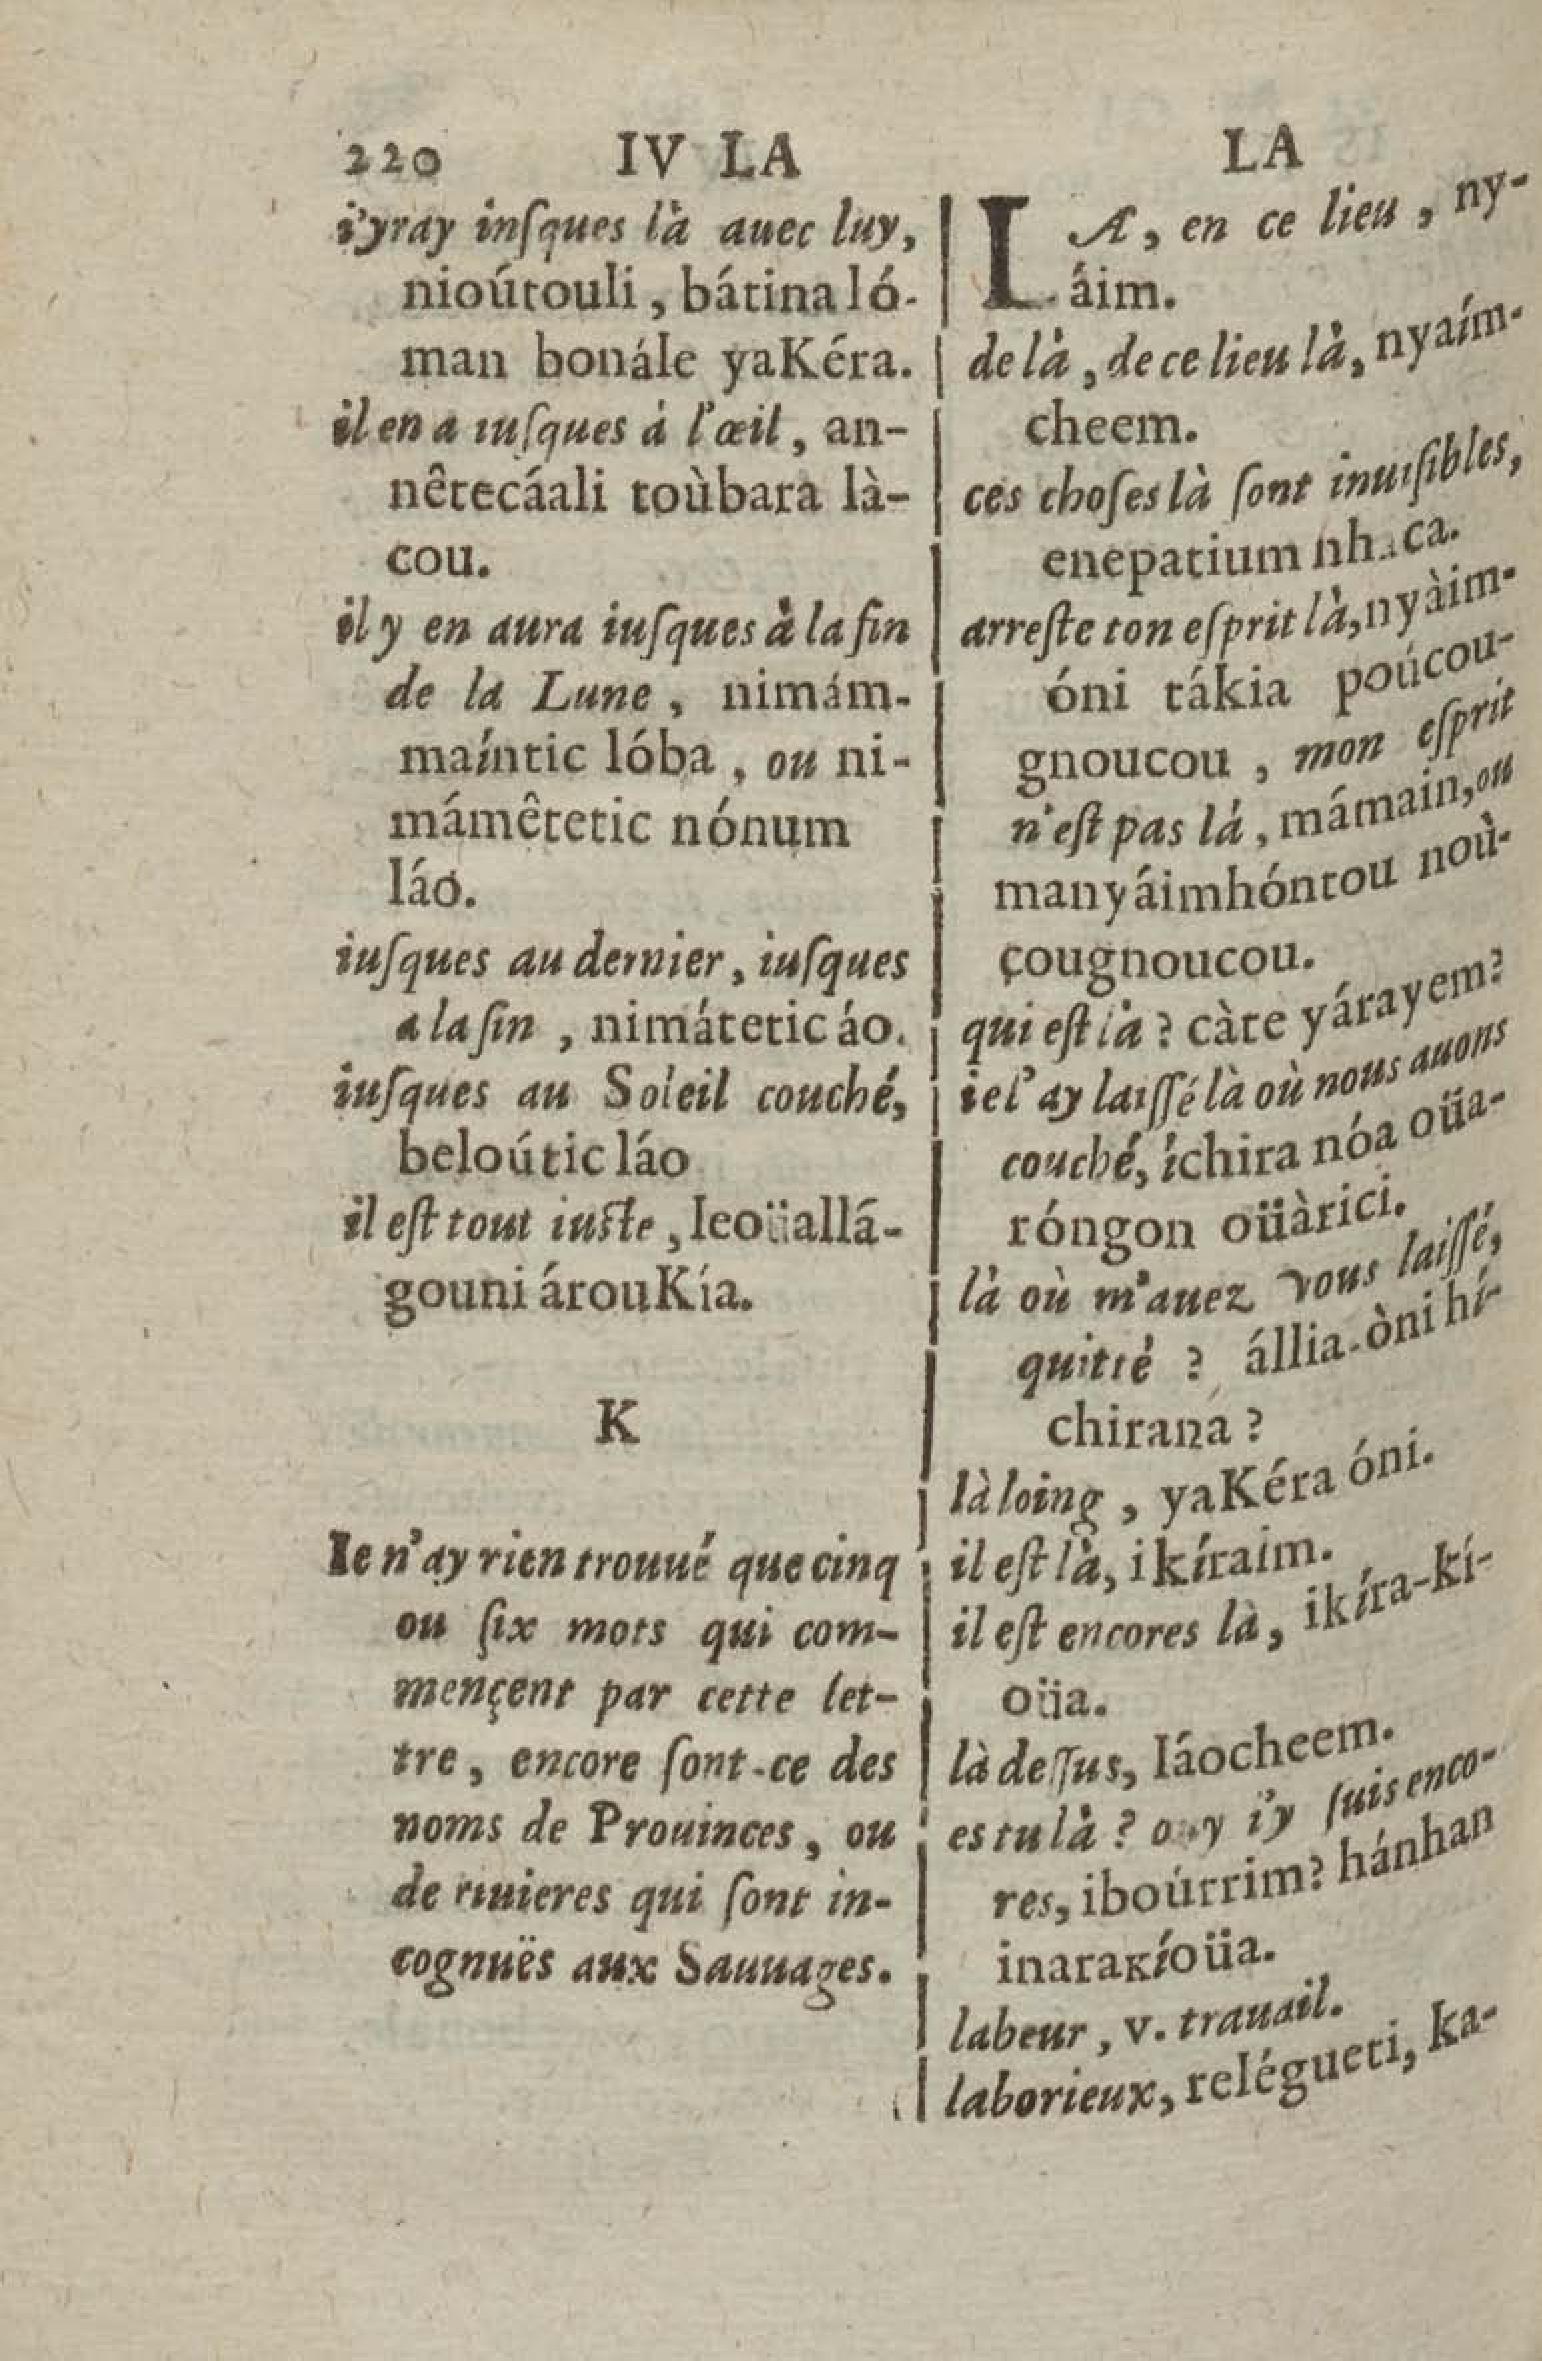 220 IV LA
i'yray iusques là auec luy,
nioútouli, bátina ló-
man bonále yaKéra.
il en a iusques á l'œil, an-
nêtecáali toùbara là-
cou.
il y en aura iusques à la fin
de la Lune, nimám-
maíntic lóba, ou ni-
mámêtetic nónum
láo.
iusques au dernier, iusques
a la fin, nimátetic áo.
iusques au Soleil couché,
beloútic láo
il est tout iuste, leoüallá-
gouni árouKía.
K
Ie n'ay rien trouué que cinq
ou six mots qui com-
mençent par cette let-
tre, encore sont-ce des
noms de Prouinces, ou
de riuieres qui sont in-
cognuës aux Sauuages.
LA
LA, en ce lieu, ny-
áim.
de là, de ce lieu là, nyaím-
cheem.
ces choses là sont inuisibles,
enepatium
arreste ton esprit là, nyàim-
óni tákia poúcou-
gnoucou, mon esprit
n'est pas lá, mámain, ou
manyáimhóntou noù-
çougnoucou.
qui est là? càte yárayem?
ie l'ay laissé là où nous auons
couché, íchira nóa oüa-
róngon oüàrici.
là où m'auez vous laissé,
quitté? állia-òni hí-
chiraná?
là loing, yaKéra óni.
il est là, ikíraim.
il est encores là, ikíra-kí-
oüa.
là dessus, Iáocheem.
es tu là? ouy i'y suis enco-
res, iboúrrim? hánhan
inaraKíoüa.
labeur, v. trauail.
laborieux, relégueti, ka-